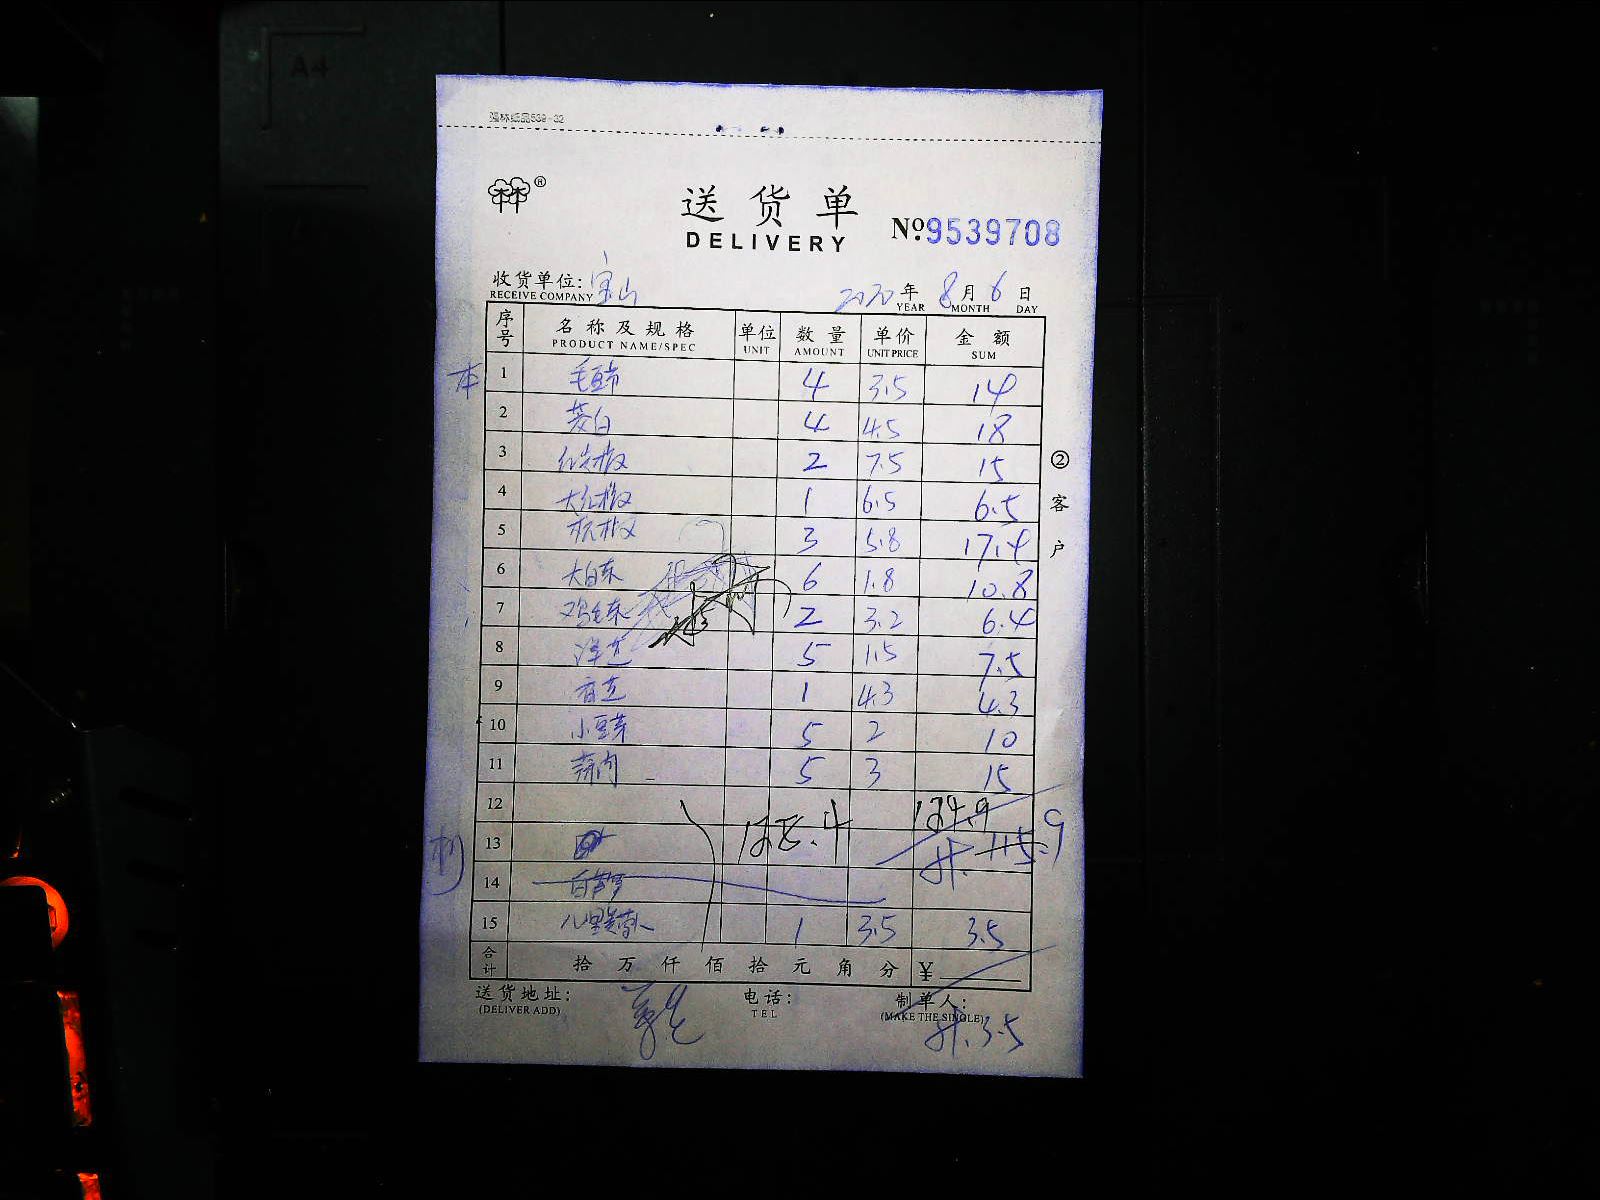 A4
强林纸品539-32
林林®
送货单
DELIVERY
Nº9539708
收货单位: 宝山
RECEIVE COMPANY
2020年 8月 6日
YEAR MONTH DAY
序号 名称及规格 单位 数量 单价 金额
PRODUCT NAME/SPEC UNIT AMOUNT UNIT PRICE SUM
本
1 毛豆节 4 3.5 14
2 茭白 4 4.5 18
3 红尖椒 2 7.5 15
4 大红椒 1 6.5 6.5
5 杭椒 3 5.8 17.4
6 大白菜 6 1.8 10.8
7 鸡毛菜 2 3.2 6.4
8 洋芋 5 1.5 7.5
9 香芹 1 4.3 4.3
10 小豆芽 5 2 10
11 蒜肉 5 3 15
12 128.4 124.9
13 计. 115.9
14 白萝卜
15 1 3.5 3.5
合计 拾万仟佰拾元角分 ¥
送货地址: 电话: 制单人:
(DELIVER ADD) TEL (MAKE THE SINGLE)
计. 3.5
②客户